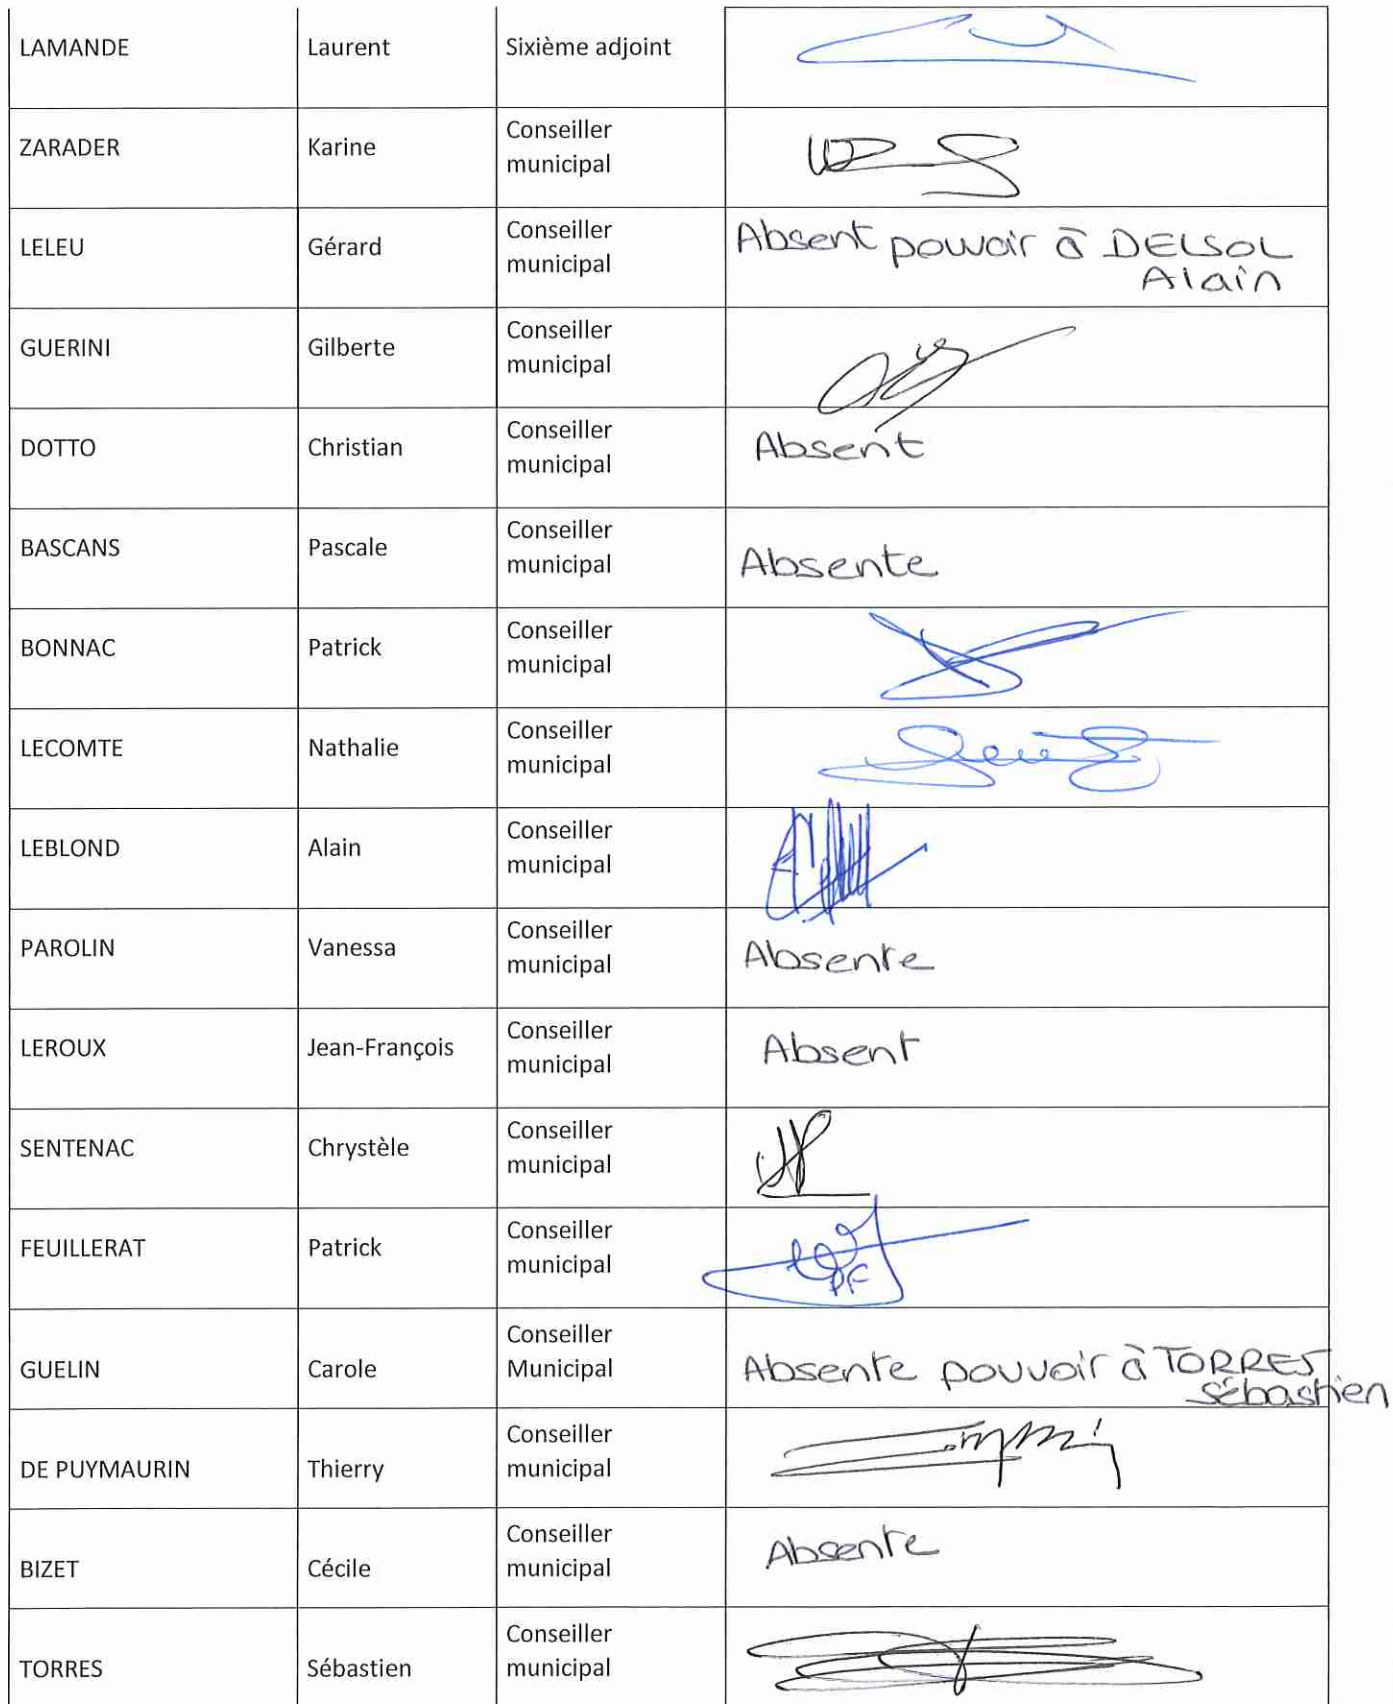 LAMANDE Laurent Sixième adjoint
ZARADER Karine Conseiller
municipal
LELEU Gérard Conseiller
municipal
Absent pouvoir à DELSOL
Alain
GUERINI Gilberte Conseiller
municipal
DOTTO Christian Conseiller
municipal
Absent
BASCANS Pascale Conseiller
municipal
Absente
BONNAC Patrick Conseiller
municipal
LECOMTE Nathalie Conseiller
municipal
LEBLOND Alain Conseiller
municipal
PAROLIN Vanessa Conseiller
municipal
Absente
LEROUX Jean-François Conseiller
municipal
Absent
SENTENAC Chrystèle Conseiller
municipal
FEUILLERAT Patrick Conseiller
municipal
PF
GUELIN Carole Conseiller
Municipal
Absente pouvoir à TORRES
Sébastien
DE PUYMAURIN Thierry Conseiller
municipal
BIZET Cécile Conseiller
municipal
Absente
TORRES Sébastien Conseiller
municipal